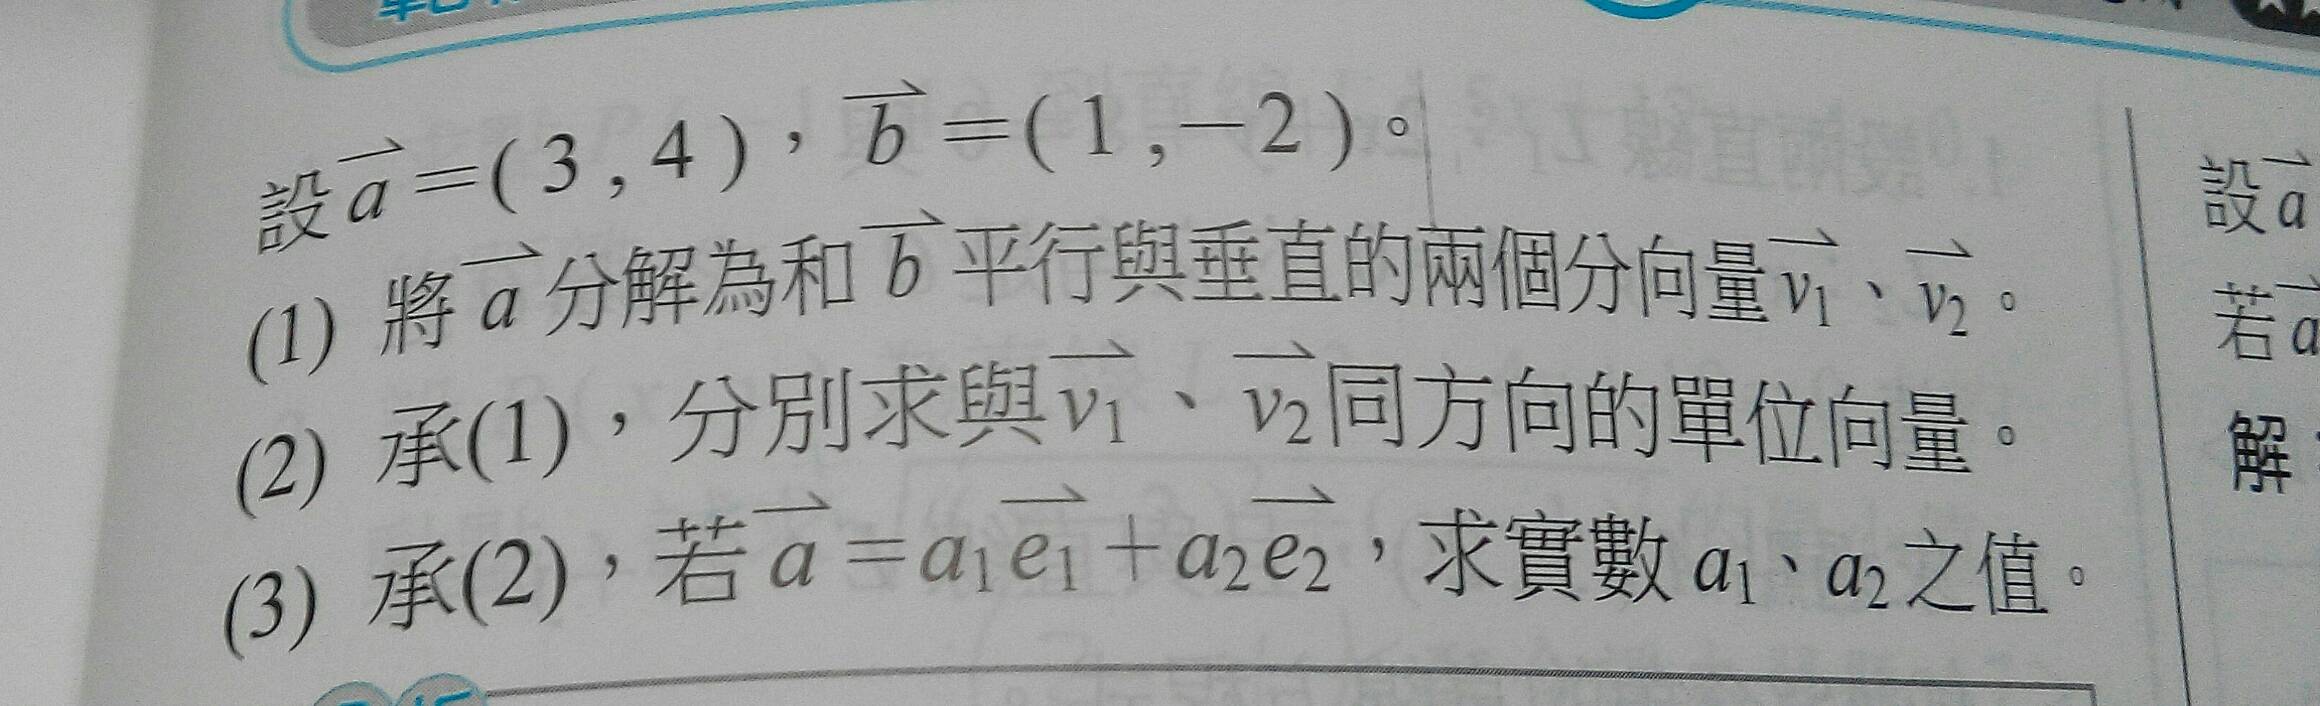 設a⃗=(3,4),b⃗=(1,-2)。
(1) 將a⃗分解為和b⃗平行與垂直的兩個分向量v₁⃗、v₂⃗。
(2) 承(1),分別求與v₁⃗、v₂⃗同方向的單位向量。
(3) 承(2),若a⃗=a₁e₁⃗+a₂e₂⃗,求實數a₁、a₂之值。
設a⃗
若a⃗
解